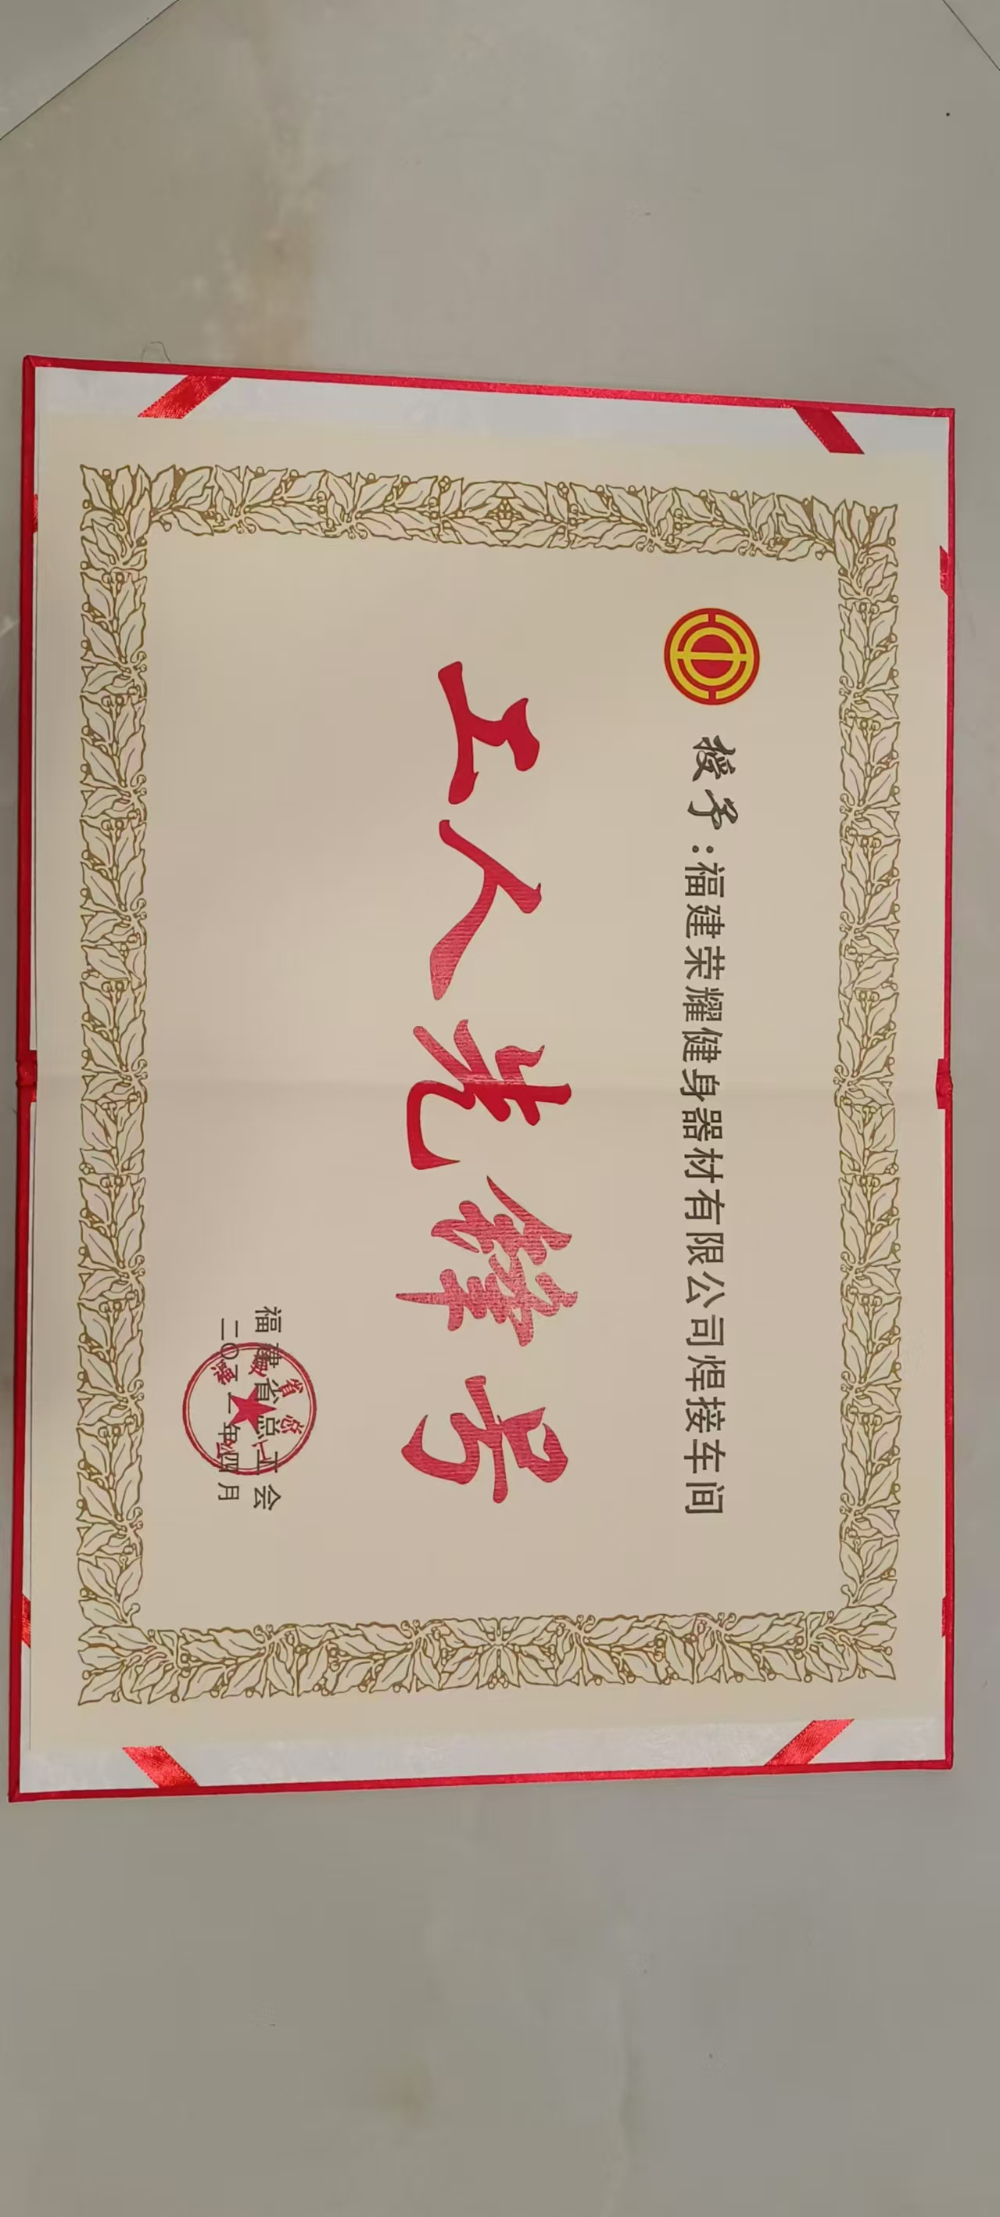 授予：福建荣耀健身器材有限公司焊接车间
工人先锋号
福建省总工会
二〇二一年四月